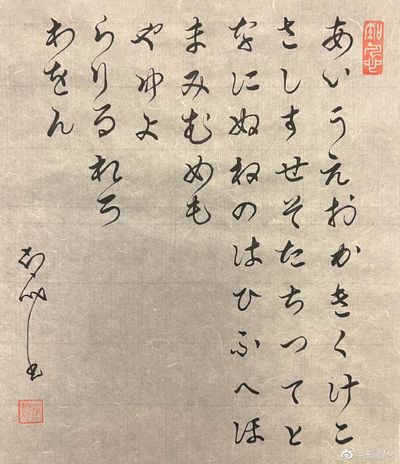 あいうえおかきくけこ
さしすせそたちつてと
なにぬねのはひふへほ
まみむめも
やゆよ
らりるれろ
わをん